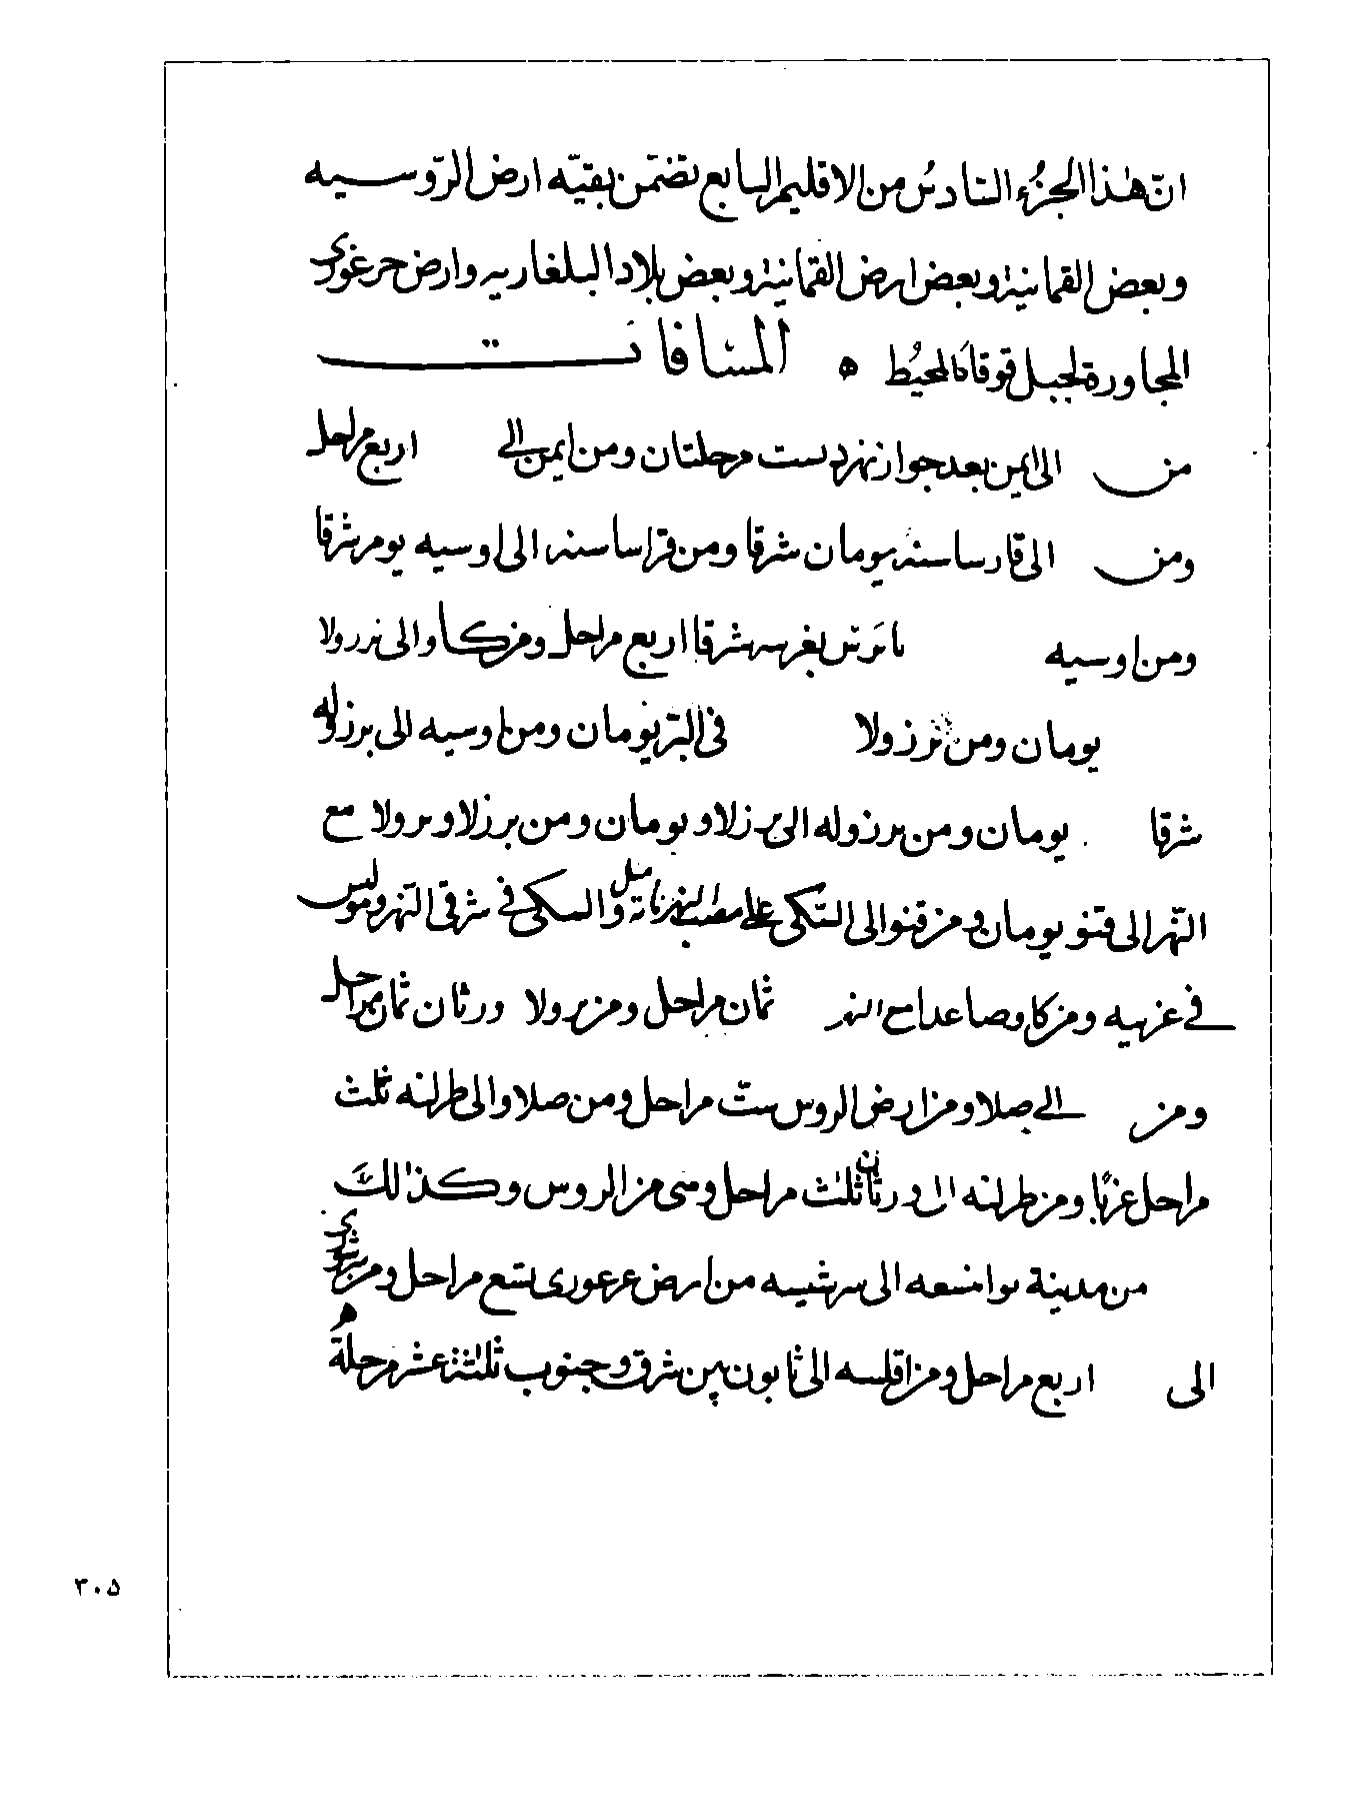 انّ هٰذا الجزُء السّادسُ من الاقليم السابع تضمّن بقيّه ارض الرّوسيه
وبعض القمانيه وبعض ارض القمانيه وبعض بلاد البلغاريه وارض
المجاورة لجبل قوقاَيَا المحيُط ه المسَافات
من الى ايمن بعد جواز نهر دست مرحلتان ومن ايمن الى اربع مراحل
ومن الى قارساسنه يومان شرقا ومن قراساسنه الى اوسيه يوم شرقا
ومن اوسيه شرقا اربع مراحل ومن كاو الى
يومان ومن برزولا فى البّر يومان ومن اوسيه الى برزوله
شرقا يومان ومن برزوله الى برزلاو يومان ومن برزلاو مع
النّهر الى قنو يومان ومن قنو الى السّكى على مصب والسكى فى شرقى النّهر
فى غربيه ومن كاو صاعدا مع النهر ثمان مراحل ومن برولا ورثان ثمان مراحل
ومن الى صلاو من ارض الروس ستّ مراحل ومن صلاو الى طرلنه ثلث
مراحل غربًا ومن طرلنه الى ورثان ثلٰث مراحل وهى من الروس وكذالكَ
من مدينة الى سرشيسه من ارض غرغورى تسع مراحل ومن
الى اربع مراحل ومن اقلسه الى ثابون بين شرق وجنوب ثلٰثة عشر مرحلةُ
٣٠٥